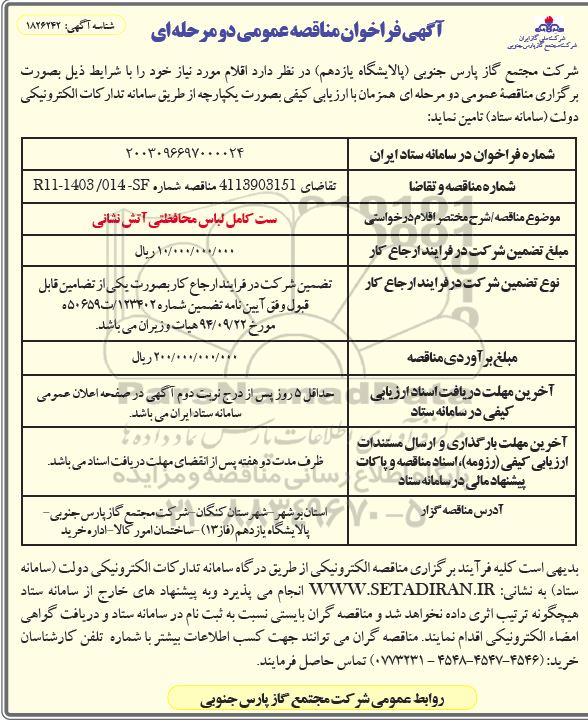 شناسه آگهی: ۱۸۲۶۲۴۲
آگهی فراخوان مناقصه عمومی دو مرحله ای
شرکت ملی گاز ایران
شرکت مجتمع گاز پارس جنوبی
شرکت مجتمع گاز پارس جنوبی (پالایشگاه یازدهم) در نظر دارد اقلام مورد نیاز خود را با شرایط ذیل بصورت
برگزاری مناقصهٔ عمومی دو مرحله ای همزمان با ارزیابی کیفی بصورت یکپارچه از طریق سامانه تدارکات الکترونیکی
دولت (سامانه ستاد) تامین نماید:
شماره فراخوان در سامانه ستاد ایران
۲۰۰۳۰۹۶۶۹۷۰۰۰۰۲۴
شماره مناقصه و تقاضا
تقاضای 4113903151 مناقصه شماره R11-1403/014-SF
موضوع مناقصه/شرح مختصر اقلام درخواستی
ست کامل لباس محافظتی آتش نشانی
مبلغ تضمین شرکت در فرایند ارجاع کار
۱۰/۰۰۰/۰۰۰/۰۰۰ ریال
نوع تضمین شرکت در فرایند ارجاع کار
تضمین شرکت در فرایند ارجاع کار بصورت یکی از تضامین قابل
قبول وفق آیین نامه تضمین شماره ۱۲۳۴۰۲/ت۵۰۶۵۹ه
مورخ ۹۴/۰۹/۲۲ هیات وزیران می باشد.
مبلغ برآوردی مناقصه
۲۰۰/۰۰۰/۰۰۰/۰۰۰ ریال
آخرین مهلت دریافت اسناد ارزیابی
کیفی در سامانه ستاد
حداقل ۵ روز پس از درج نوبت دوم آگهی در صفحه اعلان عمومی
سامانه ستاد ایران می باشد.
آخرین مهلت بارگذاری و ارسال مستندات
ارزیابی کیفی (رزومه)، اسناد مناقصه و پاکات
پیشنهاد مالی در سامانه ستاد
ظرف مدت دو هفته پس از انقضای مهلت دریافت اسناد می باشد.
آدرس مناقصه گزار
استان بوشهر – شهرستان کنگان – شرکت مجتمع گاز پارس جنوبی –
پالایشگاه یازدهم (فاز۱۳) – ساختمان امور کالا – اداره خرید
بدیهی است کلیه فرآیند برگزاری مناقصه الکترونیکی از طریق درگاه سامانه تدارکات الکترونیکی دولت (سامانه
ستاد) به نشانی: WWW.SETADIRAN.IR انجام می پذیرد وبه پیشنهاد های خارج از سامانه ستاد
هیچگونه ترتیب اثری داده نخواهد شد و مناقصه گران بایستی نسبت به ثبت نام در سامانه ستاد و دریافت گواهی
امضاء الکترونیکی اقدام نمایند. مناقصه گران می توانند جهت کسب اطلاعات بیشتر با شماره تلفن کارشناسان
خرید: (۴۵۴۶–۴۵۴۷–۴۵۴۸ – ۰۷۷۳۲۳۱) تماس حاصل فرمایند.
روابط عمومی شرکت مجتمع گاز پارس جنوبی